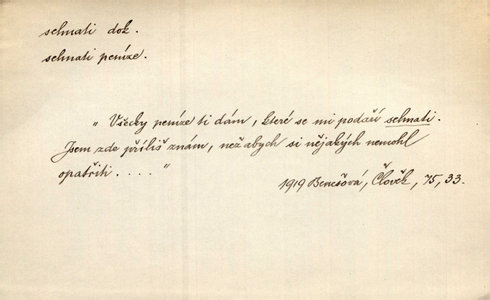 sehnati dok.
sehnati peníze.
„ Všecky peníze ti dám, které se mi podaří sehnati.
Jsem zde příliš znám, než abych si nějakých nemohl
opatřiti. . . . "
1919 Benešová, Člověk, 75, 33.